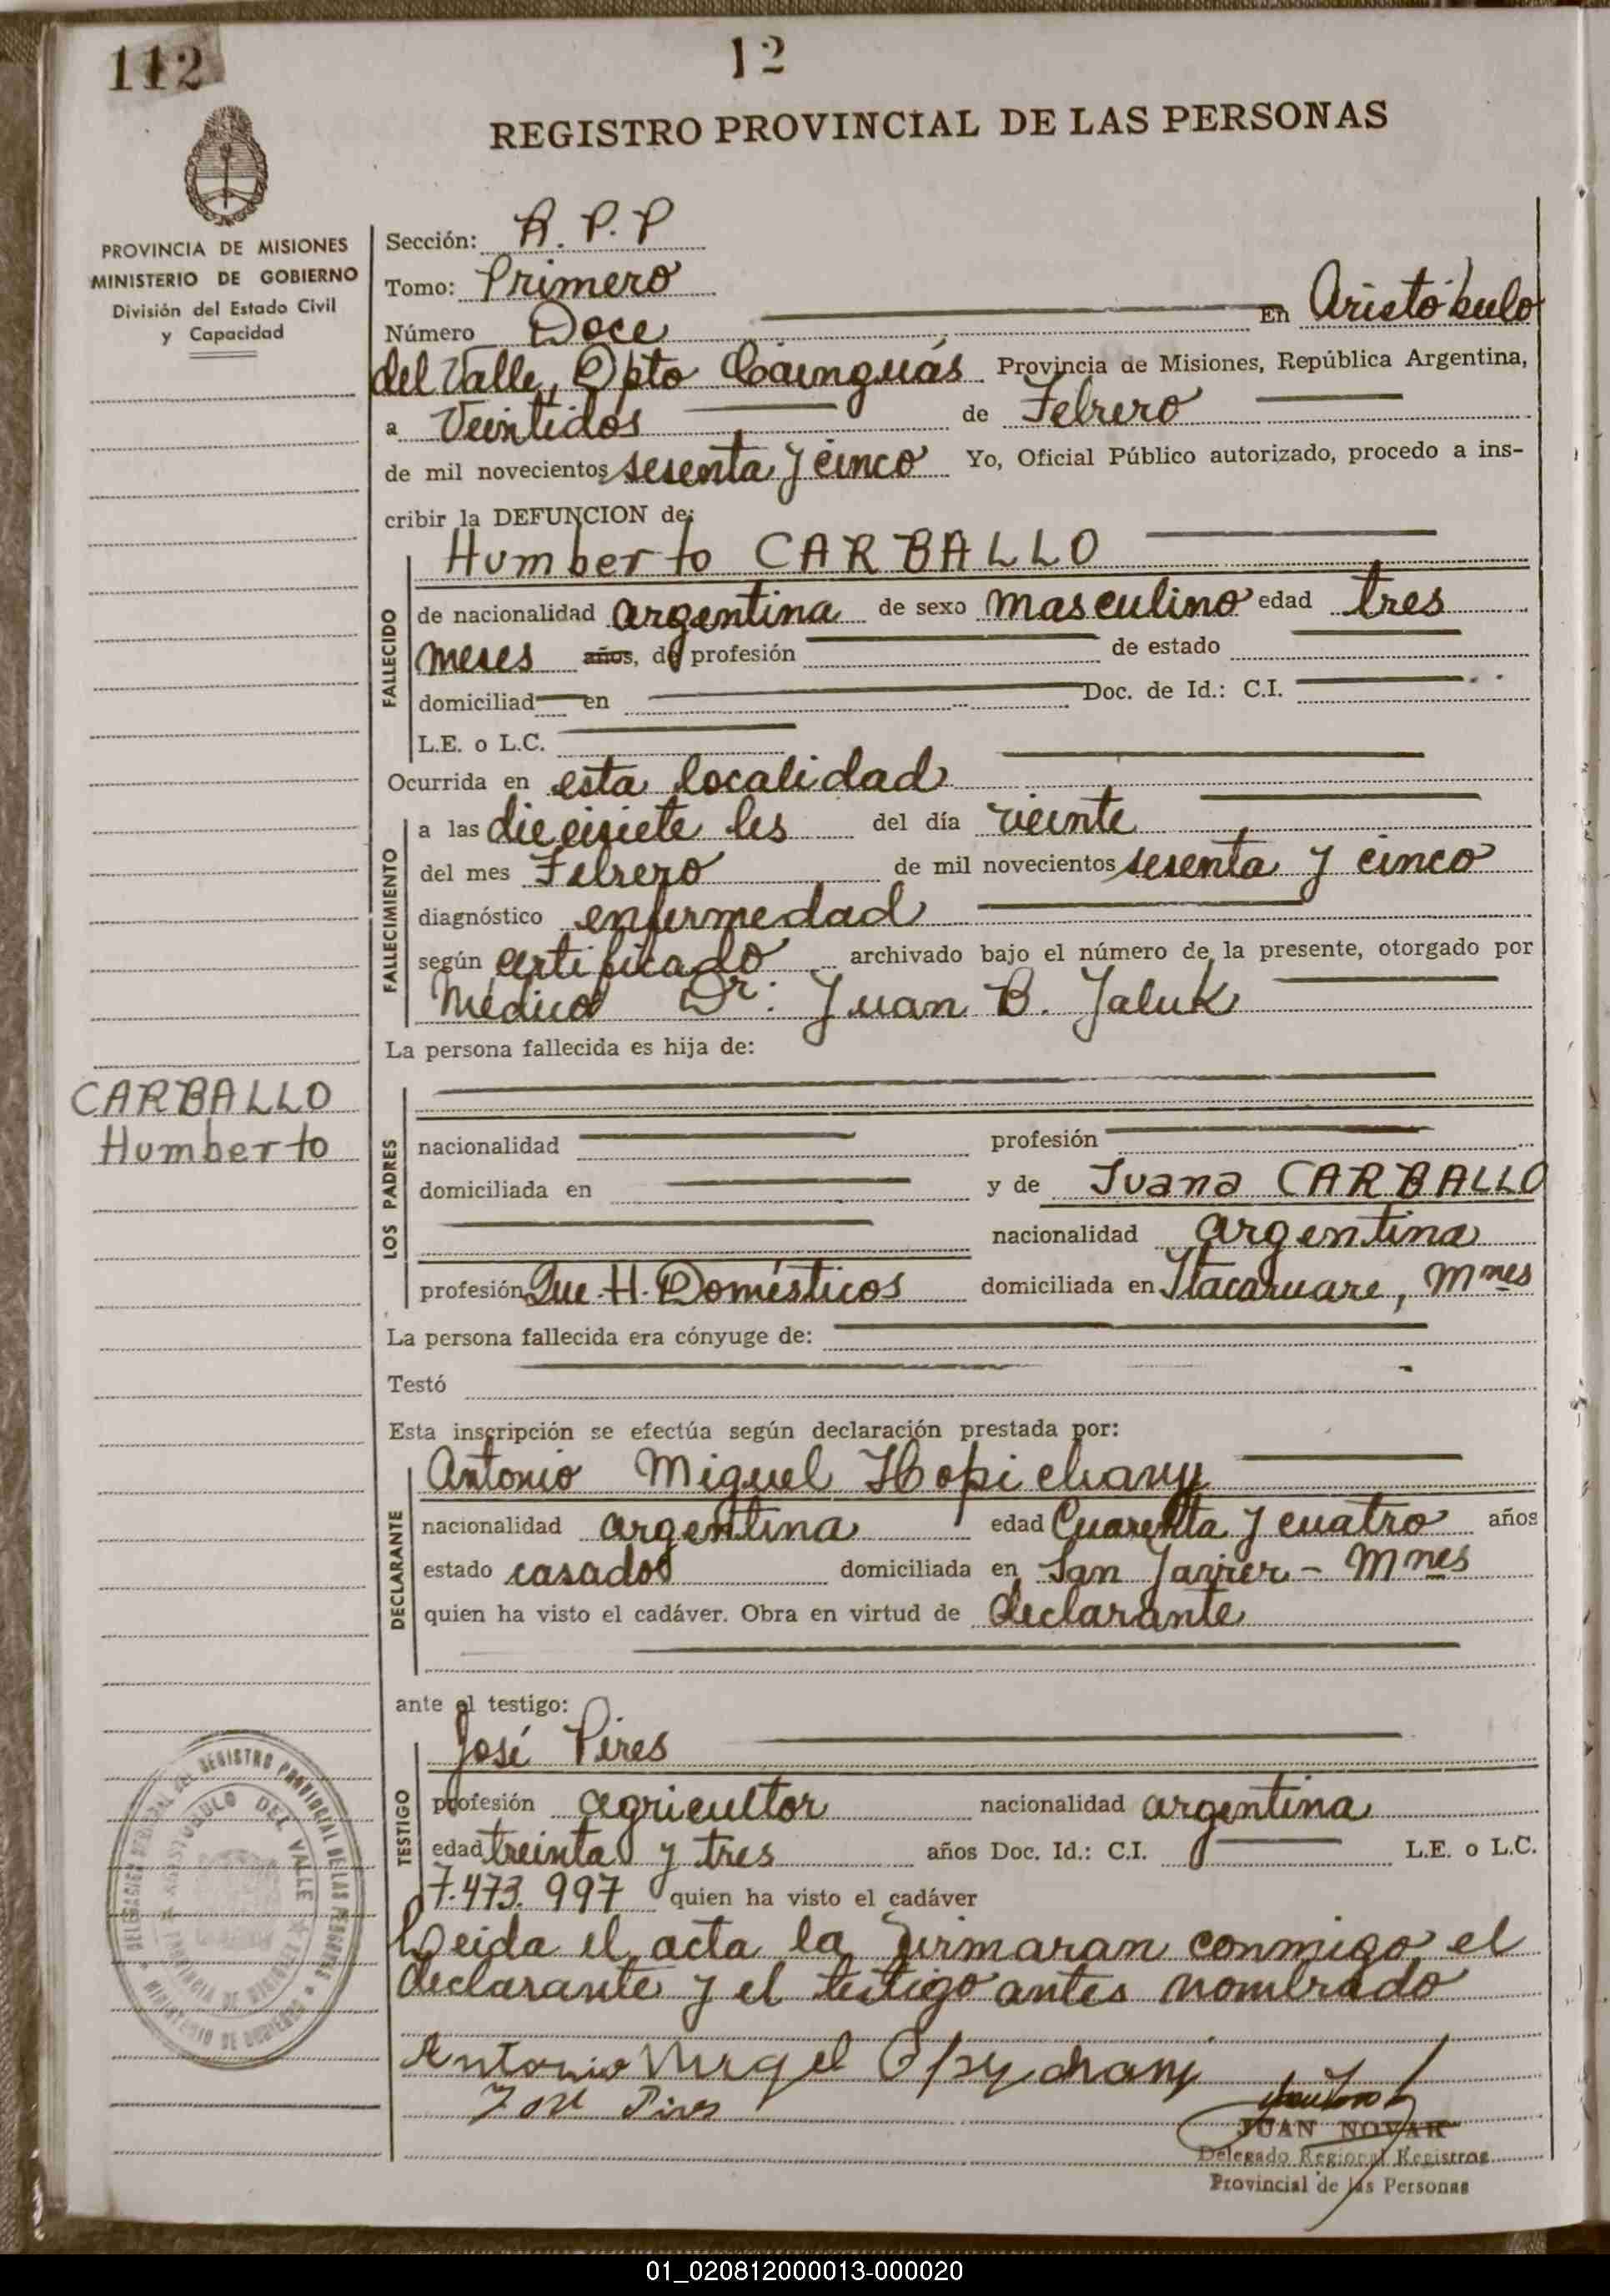 112
12
REGISTRO PROVINCIAL DE LAS PERSONAS
PROVINCIA DE MISIONES
MINISTERIO DE GOBIERNO
División del Estado Civil
y Capacidad
Sección: R. P. P
Tomo: Primero
Número Doce En Aristóbulo
del Valle, Dpto Cainguás Provincia de Misiones, República Argentina,
a Veintidos de Febrero
de mil novecientos sesenta y cinco Yo, Oficial Público autorizado, procedo a ins-
cribir la DEFUNCION de:
Humberto CARBALLO
FALLECIDO
de nacionalidad argentina de sexo masculino edad tres
meses años, de profesión de estado
domiciliad en Doc. de Id.: C.I.
L.E. o L.C.
Ocurrida en esta localidad
FALLECIMIENTO
a las diecisiete hs del día veinte
del mes Febrero de mil novecientos sesenta y cinco
diagnóstico enfermedad
según certificado archivado bajo el número de la presente, otorgado por
Médico Dr: Juan B. Jaluk
La persona fallecida es hija de:
CARBALLO
Humberto
LOS PADRES
nacionalidad profesión
domiciliada en y de Juana CARBALLO
nacionalidad argentina
profesión Que. H. Domésticos domiciliada en Itacaruare, Mnes
La persona fallecida era cónyuge de:
Testó
Esta inscripción se efectúa según declaración prestada por:
DECLARANTE
Antonio Miguel
nacionalidad argentina edad Cuarenta y cuatro años
estado casado domiciliada en San Javier - Mnes
quien ha visto el cadáver. Obra en virtud de declarante
ante el testigo:
TESTIGO
José Pires
profesión agricultor nacionalidad argentina
edad treinta y tres años Doc. Id.: C.I. L.E. o L.C.
7.473.997 quien ha visto el cadáver
Leida el acta la firmaran conmigo el
declarante y el testigo antes nombrado
Antonio
José Pires
JUAN NOVAK
Delegado Regional Registros
Provincial de las Personas
REGISTRO PROVINCIAL DE LAS PERSONAS
ARISTOBULO DEL VALLE
PROVINCIA DE MISIONES
MINISTERIO DE GOBIERNO
01_020812000013-000020